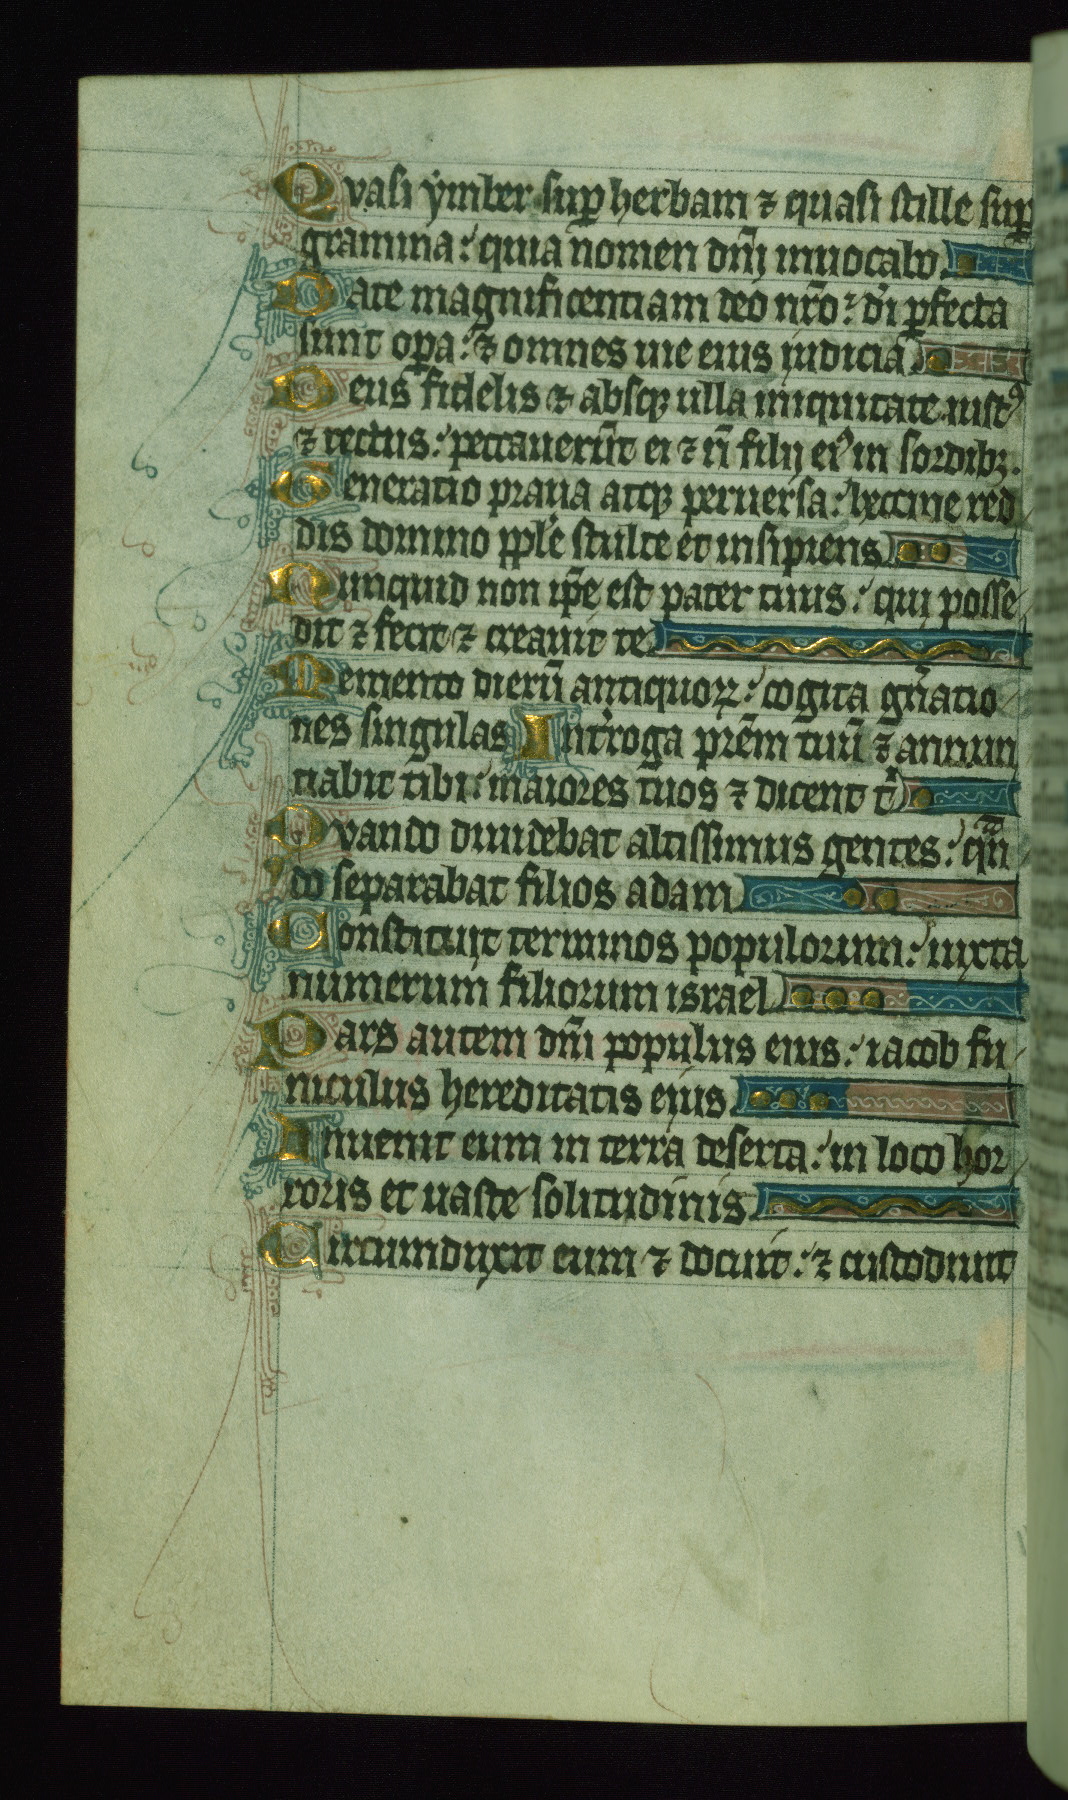 Quasi ymber sup herbam ⁊ quasi stille sup
gramina: quia nomen dn̄i inuocabo.
Date magnificentiam deo nr̄o: di p̱fecta
sunt oꝑa: ⁊ omnes uie eius iudicia
Deus fidelis ⁊ absqꝫ ulla iniquitate iustꝰ
⁊ rectus: peccauerūt ei ⁊ n̄ filij eiꝰ in sordibꝫ.
Generatio praua atqꝫ peruersa: heccine red
dis domino pple stulte et insipiens
Nunquid non ip̄e est pater tuus: qui posse
dit ⁊ fecit ⁊ creauit te
Memento dierū antiquoꝝ: cogita gn̄atio
nes singulas Introga prēm tuū ⁊ annun
tiabit tibi: maiores tuos ⁊ dicent t
Quando diuidebat altissimus gentes: qn̄
do separabat filios adam
Constituit terminos populorum: iuxta
numerum filiorum israel
Pars autem dn̄i populus eius: iacob fu
niculus hereditatis eius
Inuenit eum in terra deserta: in loco hor
roris et uaste solitudinis
Circumduxit eum ⁊ docuit: ⁊ custodiuit